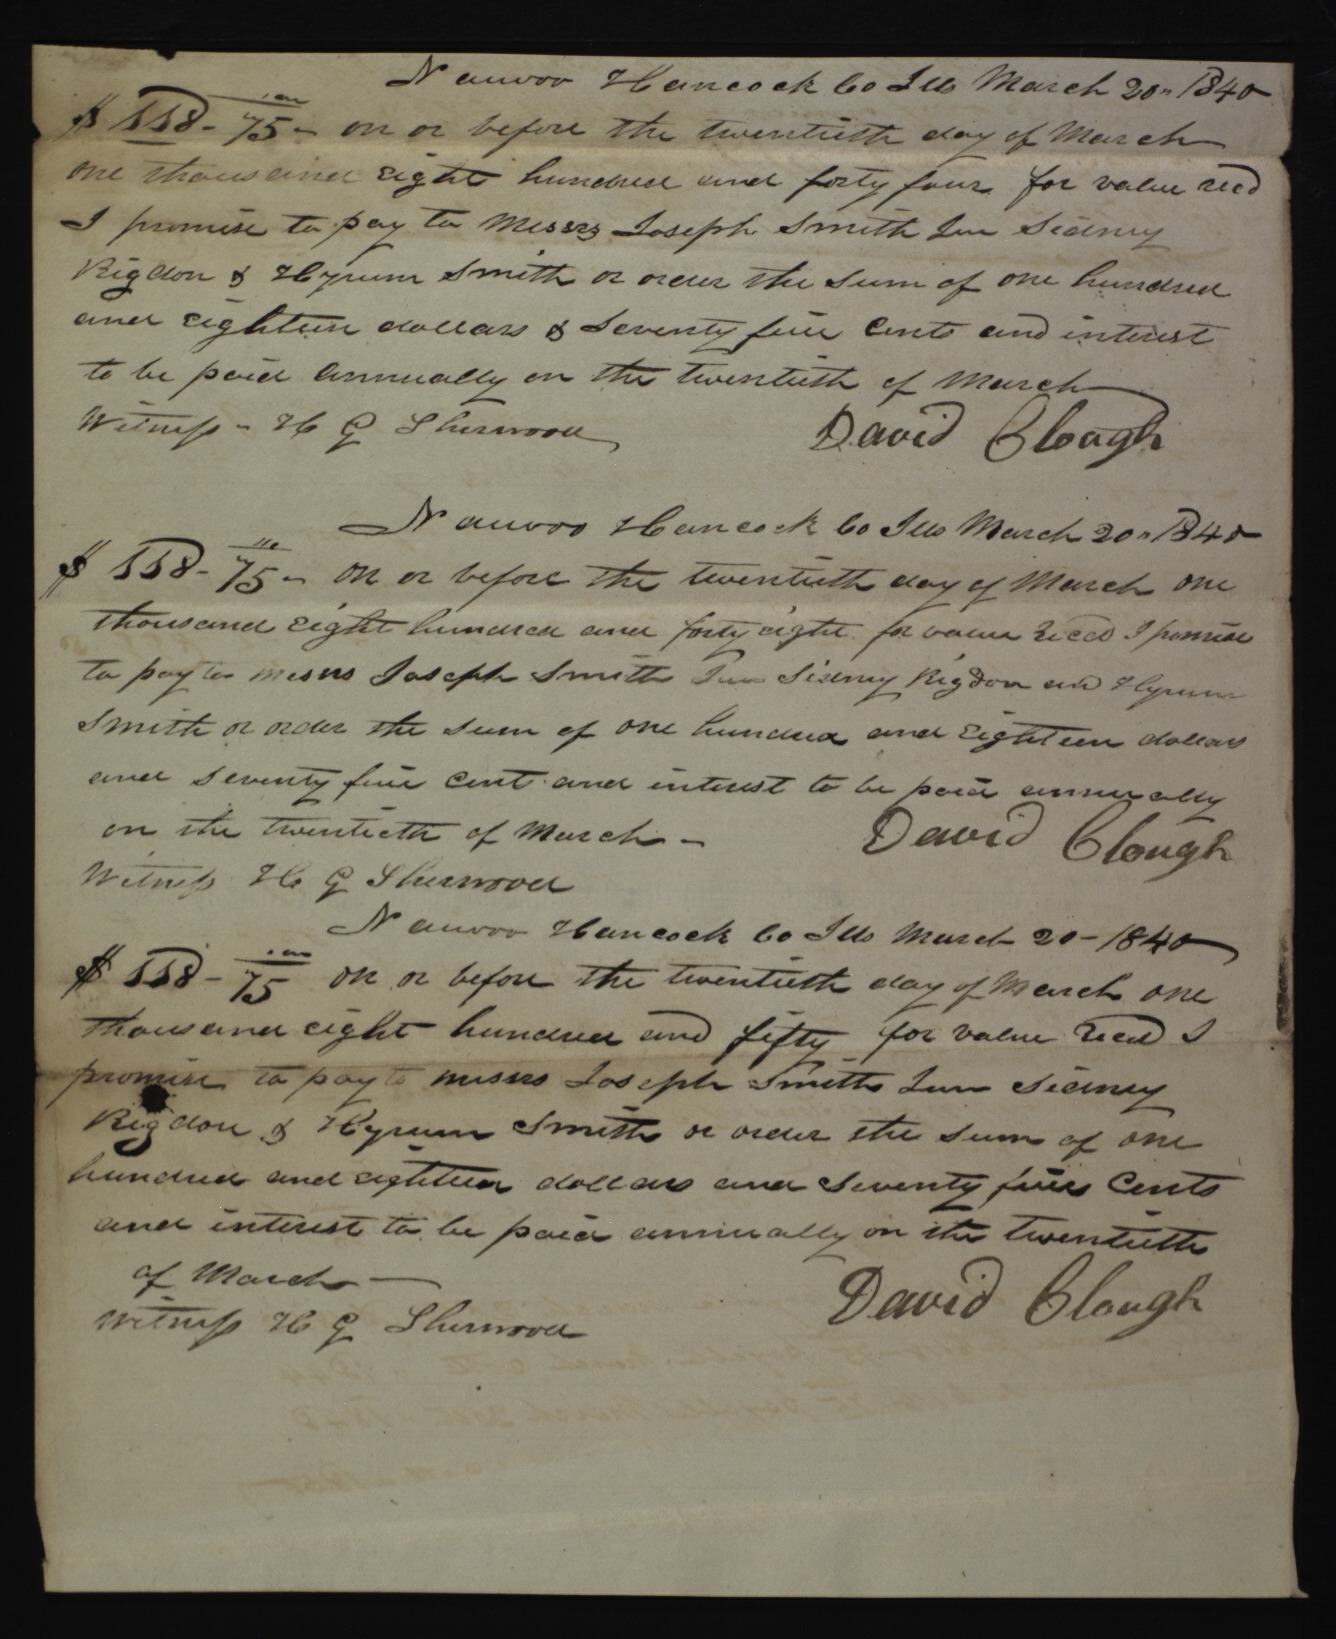 Nauvoo Hancock Co Ills March 20" 1840
$ 118-75- on or before the twentieth day of March
one thousand eight hundred and forty four for value recd
I promise to pay to Messrs Joseph Smith Jun Sidney
Rigdon & Hyrum Smith or order the sum of one hundred
and eighteen dollars & seventy five Cents and interest
to be paid annually on the twentieth of March
Witness - H G Sherwood David Clough
Nauvoo Hancock Co Ills March 20" 1840
$ 118-75- on or before the twentieth day of March one
thousand eight hundred and forty eight for value recd I promise
to pay to messrs Joseph Smith Jun Sidney Rigdon and Hyrum
Smith or order the sum of one hundred and eighteen dollars
and seventy five cent and interest to be paid annually
on the twentieth of March - David Clough
Witness H G Sherwood
Nauvoo Hancock Co Ills March 20- 1840
$ 118-75 on or before the twentieth day of March one
thousand eight hundred and fifty for value recd I
promise to pay to messrs Joseph Smith Jun Sidney
Rigdon & Hyrum Smith or order the sum of one
hundred and eighteen dollars and seventy five Cents
and interest to be paid annually on the twentieth
of March David Clough
Witness H G Sherwood